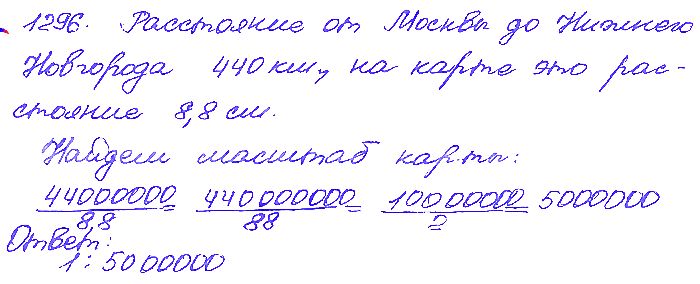 1296. Расстояние от Москвы до Нижнего
Новгорода 440 км, на карте это рас-
стояние 8,8 см.
Найдем масштаб карты:
44000000/8,8 = 440000000/88 = 10000000/2 = 5000000
Ответ:
1 : 5000000